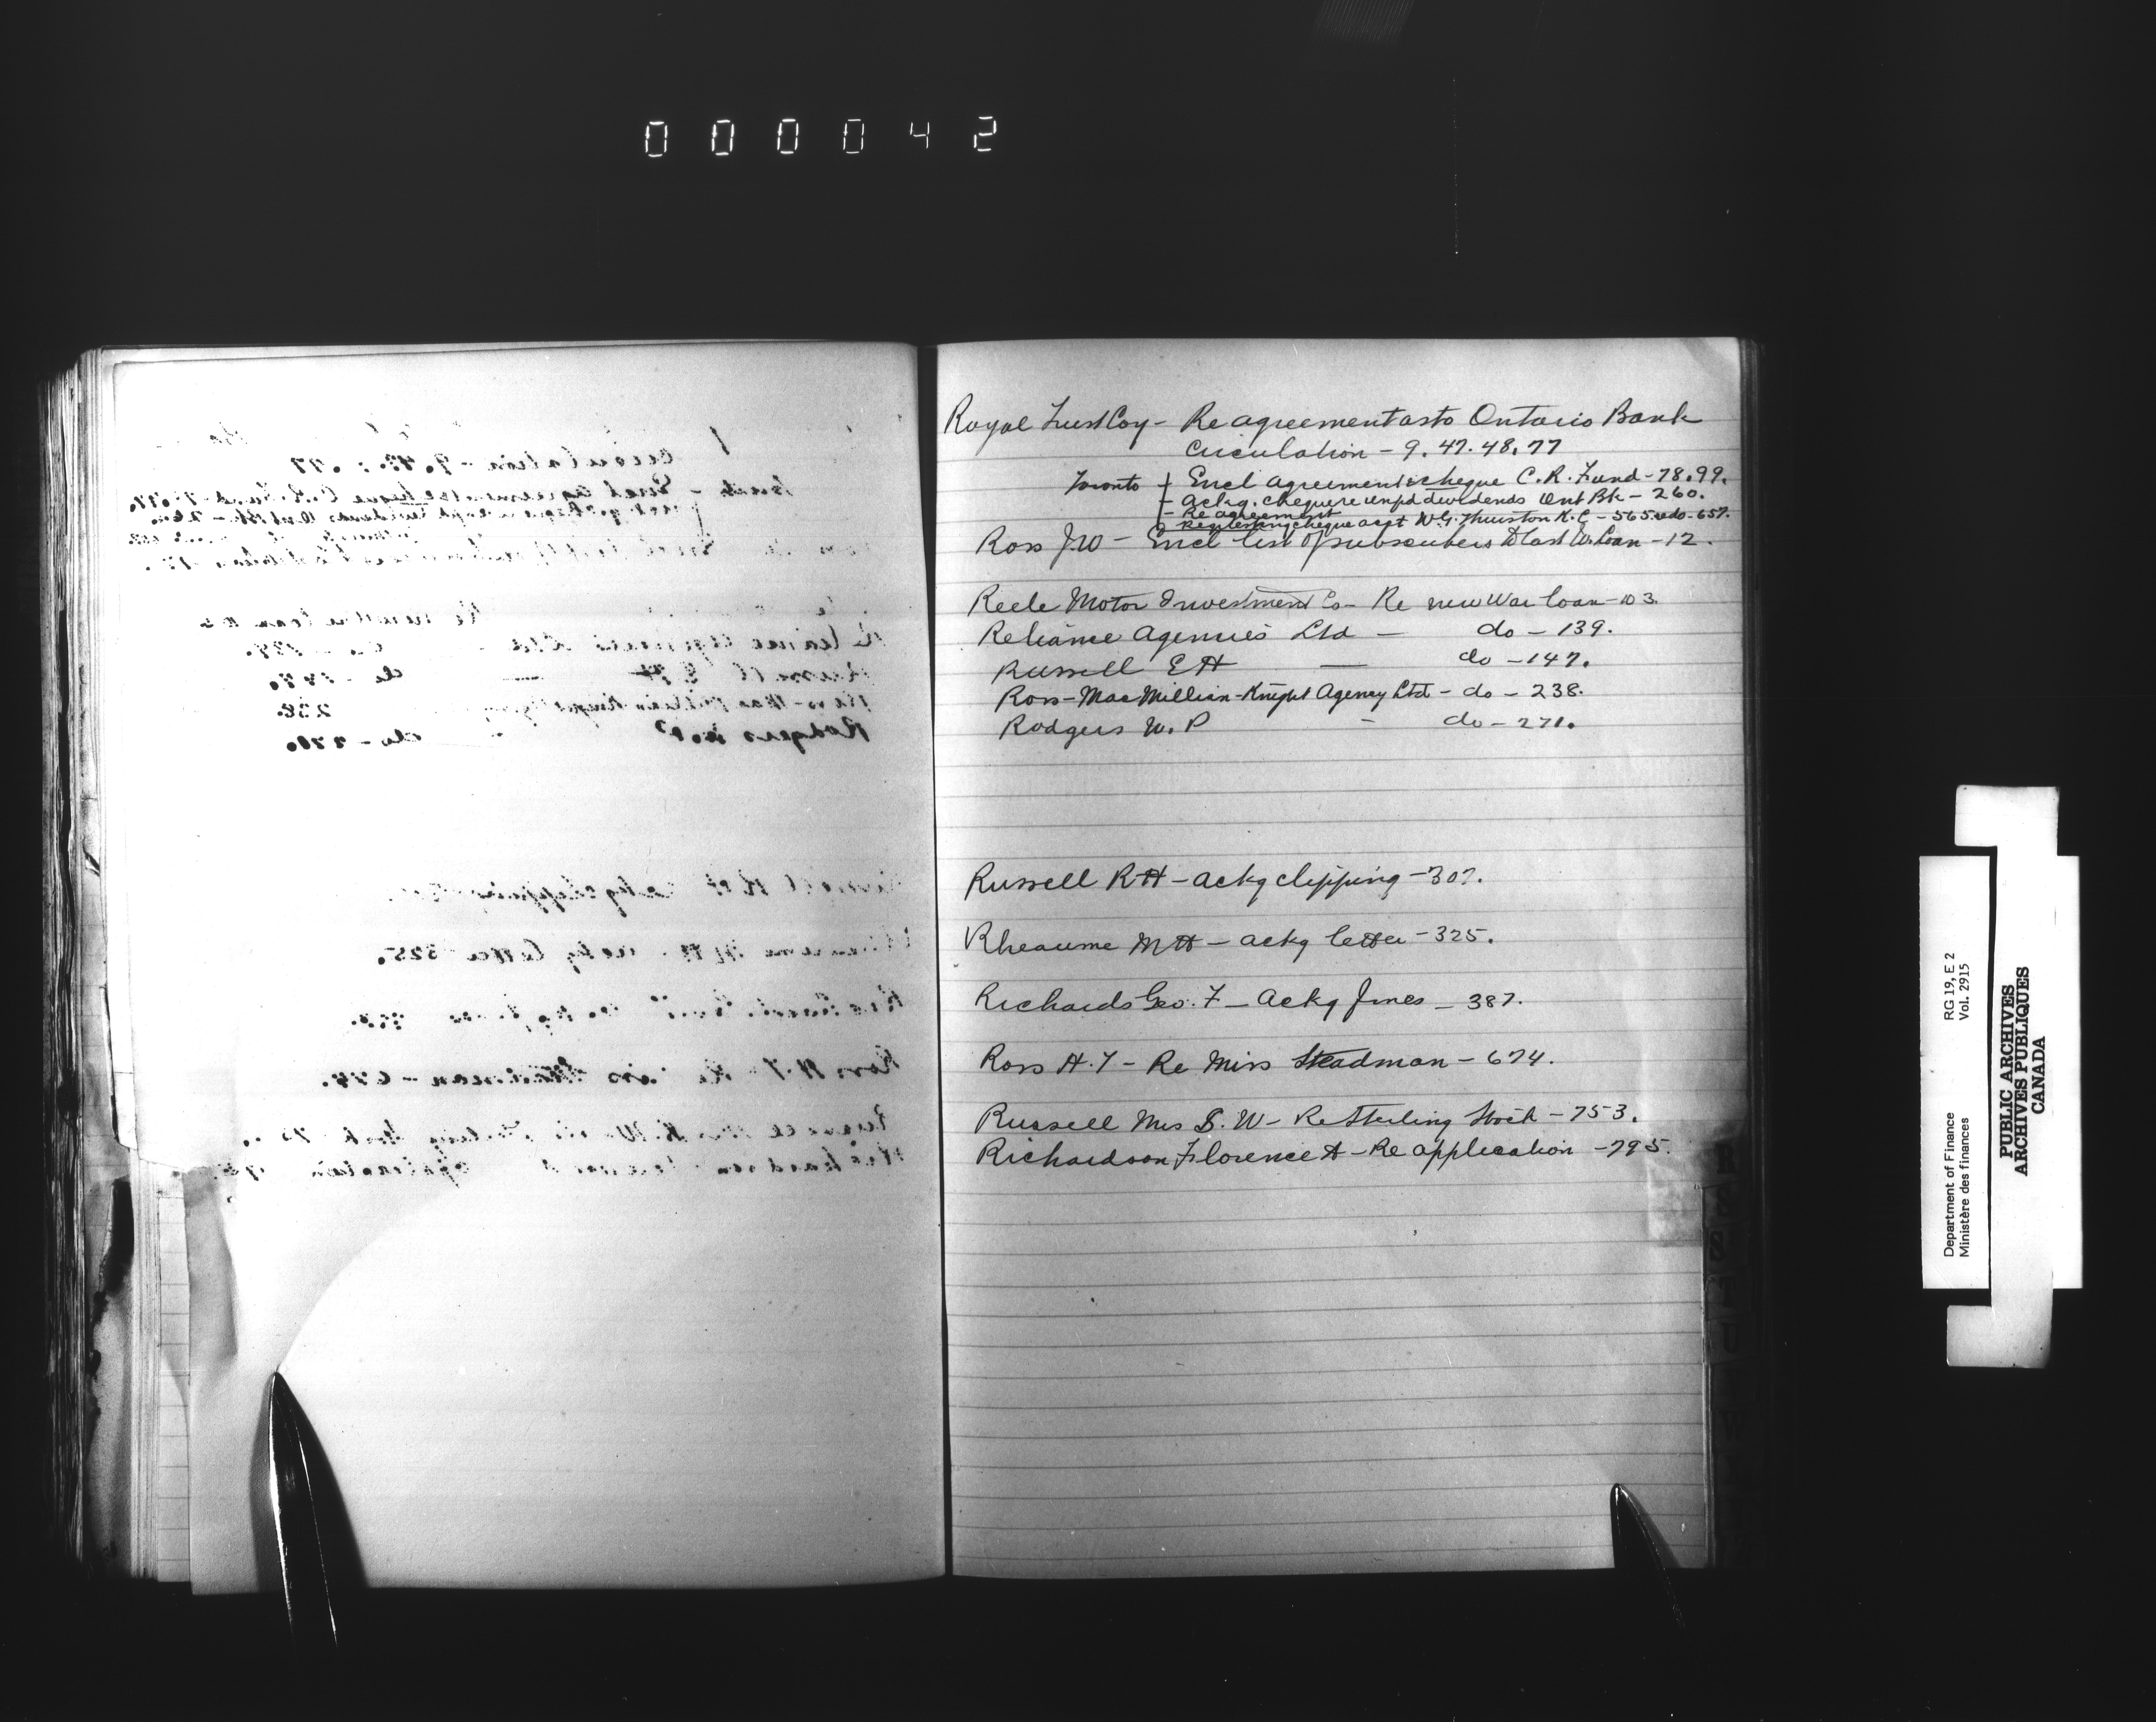 000042
Royal Trust Coy - Re agreement as to Ontario Bank
Circulation - 9. 47. 48. 77
Toronto - Encl agreement & cheque C. R. Fund - 78. 99.
- Ackg. cheque re unpd dividends Ont Bk - 260.
- Re agreement
cheque acct W. G. Thurston K. C - 565. do. 657.
Ross J. W - Encl list of subscribers to last W. Loan - 12.
Reele Motor Investment Co - Re new War loan - 103.
Reliance Agencies Ltd - do - 139.
Russell E H - do - 147.
Ross-MacMillian-Knight Agency Ltd - do - 238.
Rodgers W. P - do - 271.
Russell R H - ackg clipping - 307.
Rheaume M H - ackg letter - 325.
Richards Geo. F - Ackg - 387.
Ross H. T - Re Miss Steadman - 674.
Russell Mrs S. W - Re Sterling Stock - 753.
Richardson Florence A - Re application - 795.
Department of Finance RG 19, E 2
Ministère des finances Vol. 2915
PUBLIC ARCHIVES
ARCHIVES PUBLIQUES
CANADA